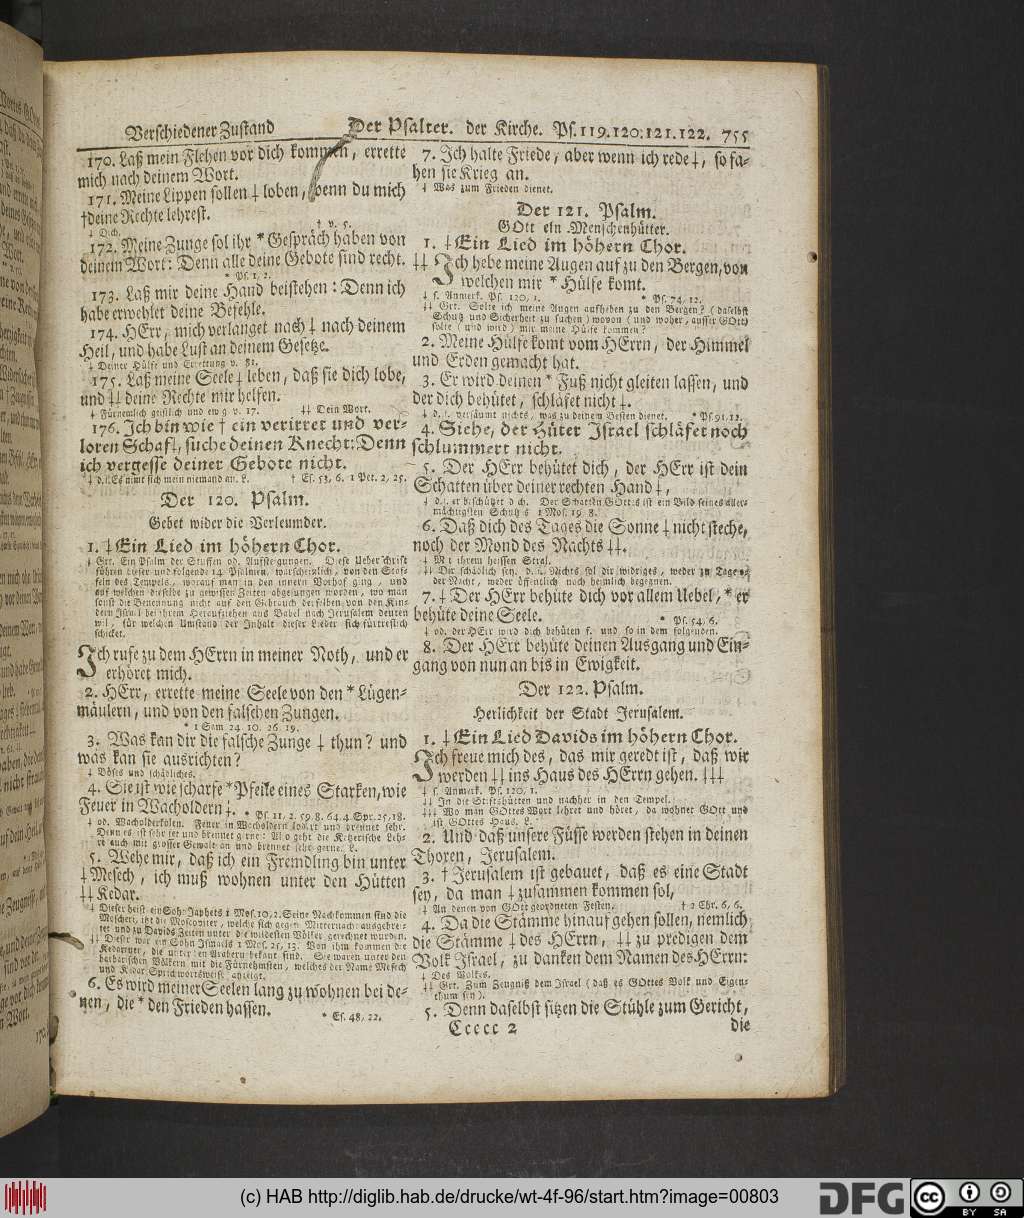 Verschiedener Zustand Der Psalter. der Kirche. Ps. 119. 120. 121. 122. 755
170. Laß mein Flehen vor dich kommen, errette
mich nach deinem Wort.
171. Meine Lippen sollen ‡ loben, wenn du mich
†deine Rechte lehrest.
‡ Dich. † v. 5.
172. Meine Zunge sol ihr * Gespräch haben von
deinem Wort: Denn alle deine Gebote sind recht.
* Ps. 1, 2.
173. Laß mir deine Hand beistehen: Denn ich
habe erwehlet deine Befehle.
174. HErr, mich verlanget nach ‡ nach deinem
Heil, und habe Lust an deinem Gesetze.
‡ Deiner Hülfe und Errettung v. 81.
175. Laß meine Seele ‡ leben, daß sie dich lobe,
und ‡‡ deine Rechte mir helfen.
‡ Fürnemlich geistlich und ewig v. 17. ‡‡ Dein Wort.
176. Ich bin wie † ein verirret und ver-
loren Schaf ‡, suche deinen Knecht: Denn
ich vergesse deiner Gebote nicht.
‡ d. i. Es nimt sich mein niemand an. L. † Es. 53, 6. 1 Pet. 2, 25.
Der 120. Psalm.
Gebet wider die Verleumder.
1. ‡ Ein Lied im höhern Chor.
‡ Grt. Ein Psalm der Stuffen od. Aufsteigungen. Diese Ueberschrift
führen dieser und folgende 14 Psalmen, warscheinlich, von den Stuf-
feln des Tempels, worauf man in den innern Vorhof ging, und
auf welchen dieselbe zu gewissen Zeiten abgesungen worden, wo man
sonst die Benennung nicht auf den Gebrauch derselben von den Kin-
dern Israel bei ihrem Heraufziehen aus Babel nach Jerusalem deuten
wil, für welchen Umstand der Inhalt dieser Lieder sich fürtreflich
schicket.
Ich rufe zu dem HErrn in meiner Noth, und er
erhöret mich.
2. HErr, errette meine Seele von den * Lügen-
mäulern, und von den falschen Zungen.
* 1 Sam. 24, 10. 26, 19.
3. Was kan dir die falsche Zunge ‡ thun? und
was kan sie ausrichten?
‡ Böses und schädliches.
4. Sie ist wie scharfe * Pfeile eines Starken, wie
Feuer in Wacholdern ‡. * Ps. 11, 2. 59, 8. 64, 4. Spr. 25, 18.
‡ od. Wacholderkolen. Feuer in Wacholdern lodert und brennet sehr.
Denn es ist sehr fet und brennet gerne: Also geht die Ketzerische Leh-
re auch mit grosser Gewalt an und brennet sehr gerne. L.
5. Wehe mir, daß ich ein Fremdling bin unter
‡ Mesech, ich muß wohnen unter den Hütten
‡‡ Kedar.
‡ Dieser heist ein Sohn Japhets 1 Mos. 10, 2. Seine Nachkommen sind die
Moscheri, itzt die Moscoviter, welche sich gegen Mitternacht ausgebrei-
tet und zu Davids Zeiten unter die wildesten Völker gerechnet wurden.
‡‡ Dieser war ein Sohn Ismaels 1 Mos. 25, 13. Von ihm kommen die
Kedarener, die unter den Arabern bekant sind. Sie waren unter den
barbarischen Völkern mit die Fürnehmsten, welches der Name Mesech
und Kedar Sprichwortsweise anzeigt.
6. Es wird meiner Seelen lang zu wohnen bei de-
nen, die * den Frieden hassen.
* Es. 48, 22.
7. Ich halte Friede, aber wenn ich rede ‡, so fa-
hen sie Krieg an.
‡ Was zum Frieden dienet.
Der 121. Psalm.
GOtt ein Menschenhütter.
1. ‡ Ein Lied im höhern Chor.
‡‡ Ich hebe meine Augen auf zu den Bergen, von
welchen mir * Hülfe komt.
‡ s. Anmerk. Ps. 120, 1. * Ps. 74, 12.
‡‡ Grt. Solte ich meine Augen aufheben zu den Bergen? (daselbst
Schutz und Sicherheit zu suchen) wovon (und woher, ausser GOtt)
solte (und wird) mir meine Hülfe kommen?
2. Meine Hülfe komt vom HErrn, der Himmel
und Erden gemacht hat.
3. Er wird deinen * Fuß nicht gleiten lassen, und
der dich behütet, schläfet nicht ‡.
‡ d. i. versäumt nichts, was zu deinem Besten dienet. * Ps. 91, 12.
4. Siehe, der Hüter Israel schläfet noch
schlummert nicht.
5. Der HErr behütet dich, der HErr ist dein
Schatten über deiner rechten Hand ‡,
‡ d. i. er beschützet dich. Der Schatten GOttes ist ein Bild seines aller-
mächtigsten Schutzes 1 Mos. 19, 8.
6. Daß dich des Tages die Sonne ‡ nicht steche,
noch der Mond des Nachts ‡‡.
‡ Mit ihrem heissen Stral.
‡‡ Dir schädlich sey. d. i. Nichts sol dir widriges, weder zu Tage, noch
der Nacht, weder öffentlich noch heimlich begegnen.
7. ‡ Der HErr behüte dich vor allem Uebel, * er
behüte deine Seele. * Ps. 54, 6.
‡ od. der HErr wird dich behüten s. und so in dem folgenden.
8. Der HErr behüte deinen Ausgang und Ein-
gang von nun an bis in Ewigkeit.
Der 122. Psalm.
Herlichkeit der Stadt Jerusalem.
1. ‡ Ein Lied Davids im höhern Chor.
Ich freue mich des, das mir geredt ist, daß wir
werden ‡‡ ins Haus des HErrn gehen. ‡‡‡
‡ s. Anmerk. Ps. 120, 1.
‡‡ In die Stiftshütten und nachher in den Tempel.
‡‡‡ Wo man GOttes Wort lehret und höret, da wohnet GOtt und
ist GOttes Haus. L.
2. Und daß unsere Füsse werden stehen in deinen
Thoren, Jerusalem.
3. † Jerusalem ist gebauet, daß es eine Stadt
sey, da man ‡ zusammen kommen sol,
‡ An denen von GOtt geordneten Festen. † 2 Chr. 6, 6.
4. Da die Stämme hinauf gehen sollen, nemlich
die Stämme ‡ des HErrn, ‡‡ zu predigen dem
Volk Israel, zu danken dem Namen des HErrn:
‡ Des Volkes.
‡‡ Grt. Zum Zeugniß dem Israel (daß es GOttes Volk und Eigen-
thum sey).
5. Denn daselbst sitzen die Stühle zum Gericht,
Ccccc 2 die
172.
(c) HAB http://diglib.hab.de/drucke/wt-4f-96/start.htm?image=00803
DFG
cc BY SA